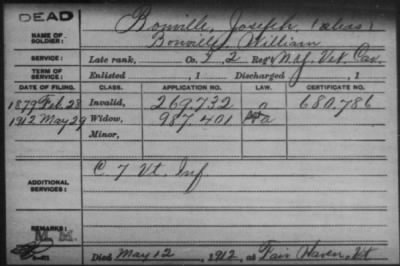 DEAD
Bonville, Joseph, (alias)
NAME OF SOLDIER:
Bonville, William
SERVICE:
Late rank, Co. I, 2 Reg't Vet. Cav.
TERM OF SERVICE:
Enlisted , 1 Discharged , 1
DATE OF FILING. CLASS. APPLICATION NO. LAW. CERTIFICATE NO.
1879 Feb. 28 Invalid, 269,732 680,786
1912 May 29 Widow, 987,401
Minor,
C 7 Vt. Inf.
ADDITIONAL SERVICES:
REMARKS:
Died May 12, 1912, at Fair Haven, Vt